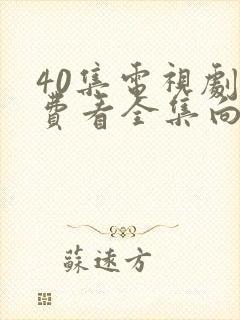 40集電視劇
費看全集向
蘇遠方